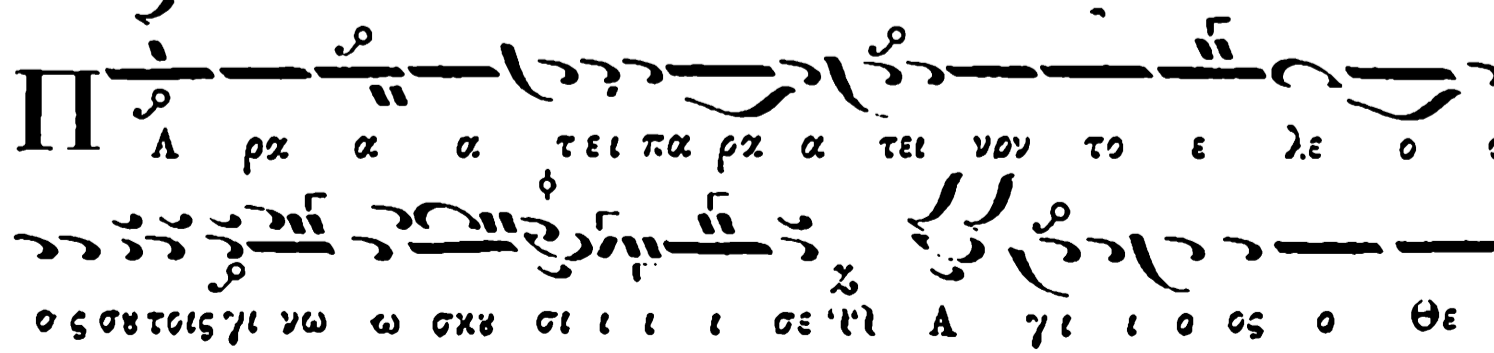 Π Α ρα α α τει πα ρα α τει νον το ε λε ο
ο ς σου τοις γι νω ω σκου σι ι ι ι σε Α γι ι ο ος ο Θε